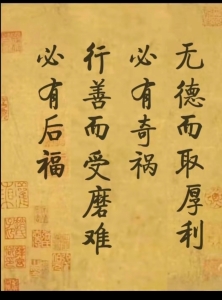 无德而取厚利
必有奇祸
行善而受磨难
必有后福